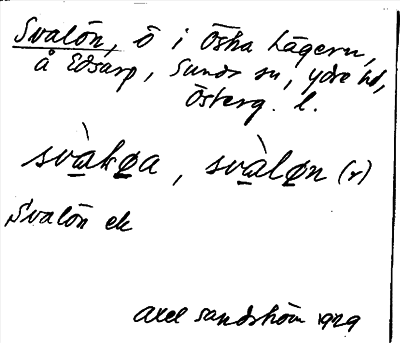 Svalön, ö i Östra Lägern,
å Edsarp, Sunds sn, Ydre hd,
Österg. l.
svàkøa, svàløn (r)
Svalön ek
Axel Sandström 1929